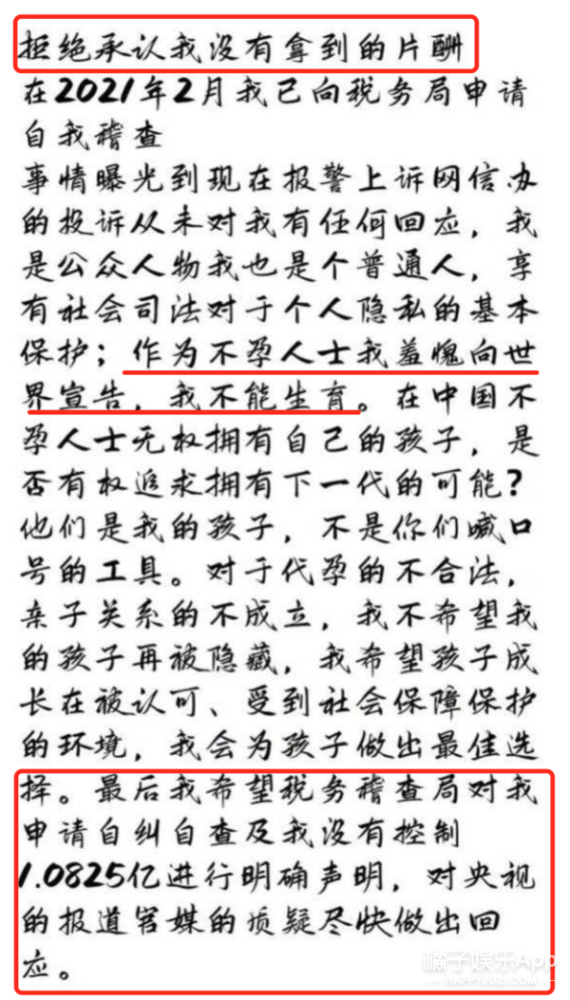 拒绝承认我没有拿到的片酬
在2021年2月我已向税务局申请
自我稽查
事情曝光到现在报警上诉网信办
的投诉从未对我有任何回应，我
是公众人物我也是个普通人，享
有社会司法对于个人隐私的基本
保护；作为不孕人士我羞愧向世
界宣告，我不能生育。在中国不
孕人士无权拥有自己的孩子，是
否有权追求拥有下一代的可能？
他们是我的孩子，不是你们喊口
号的工具。对于代孕的不合法，
亲子关系的不成立，我不希望我
的孩子再被隐藏，我希望孩子成
长在被认可、受到社会保障保护
的环境，我会为孩子做出最佳选
择。最后我希望税务稽查局对我
申请自纠自查及我没有控制
1.0825亿进行明确声明，对央视
的报道官媒的质疑尽快做出回
应。
橘子娱乐App
HAPPYJUZI.COM